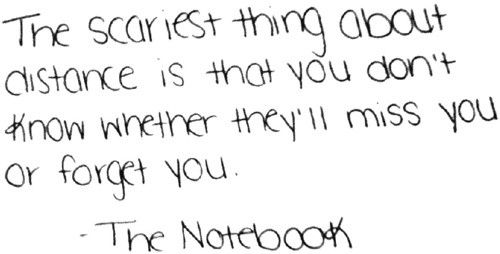 The scariest thing about
distance is that you don't
know whether they'll miss you
or forget you.
- The Notebook